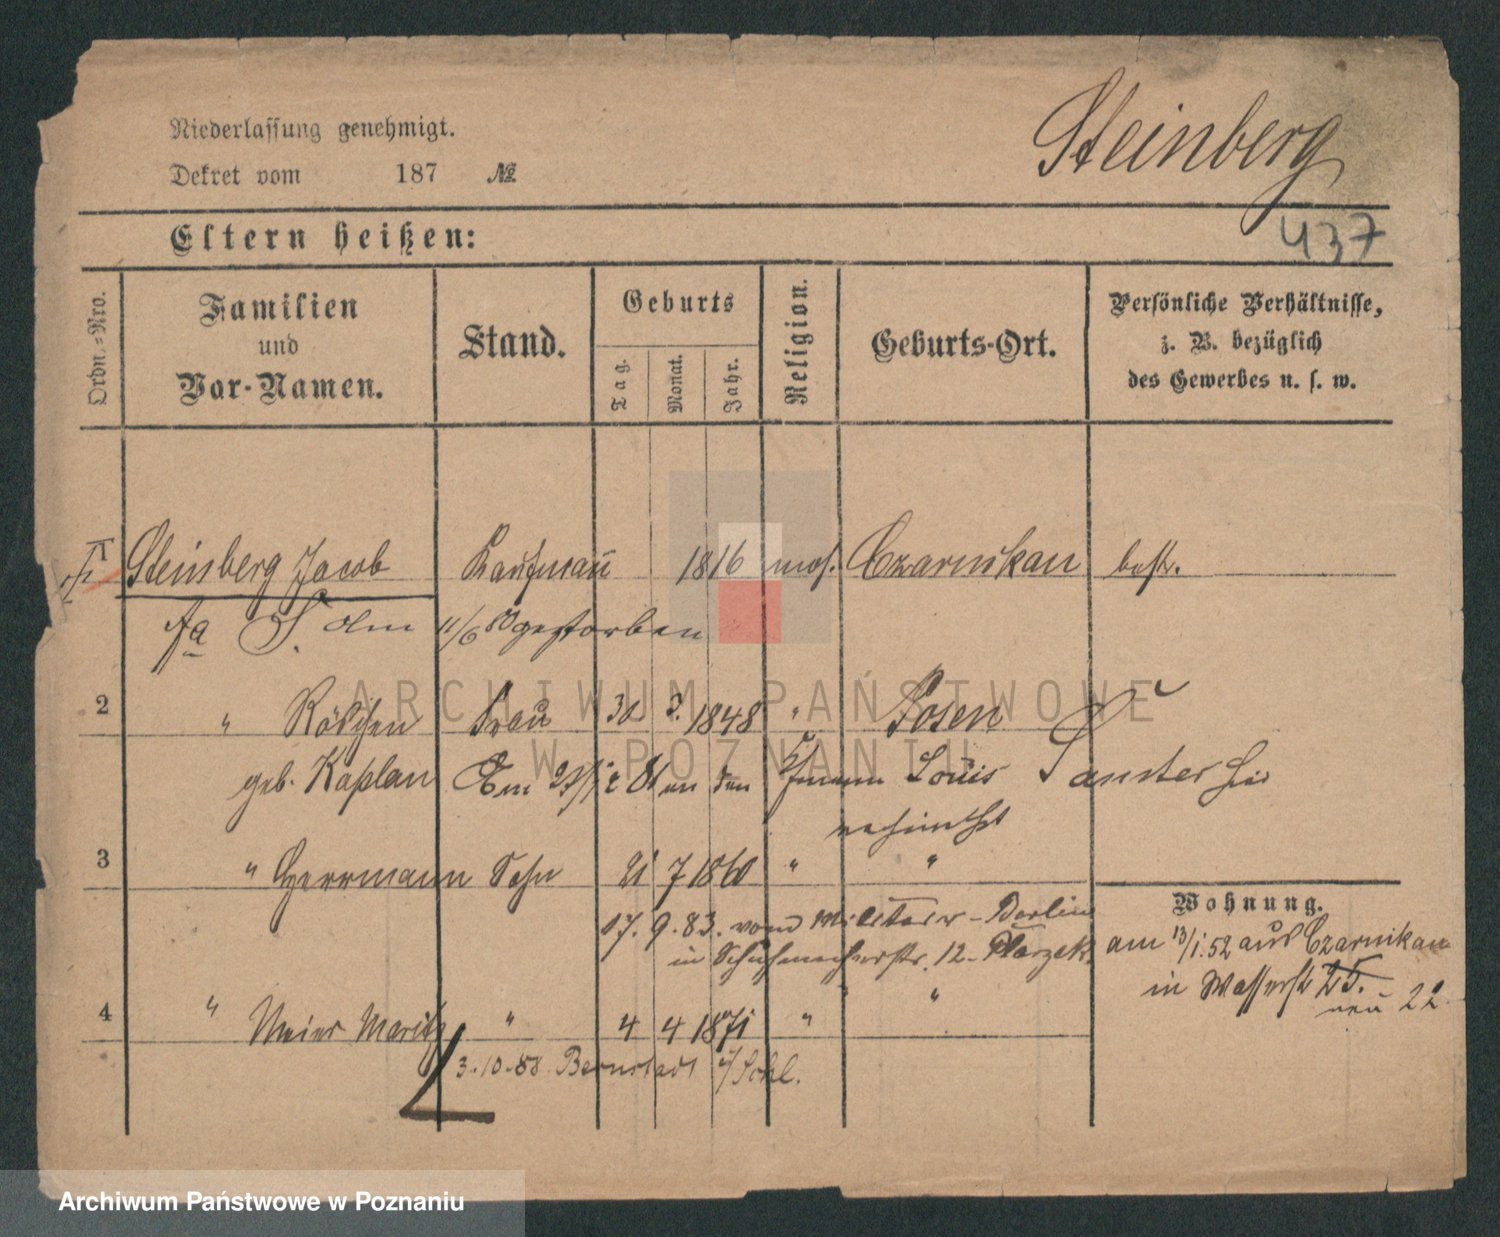 Niederlassung genehmigt.
Steinberg
Dekret vom 187 №
Eltern heißen:
437
Ordn.-Nro.
Familien
und
Vor-Namen.
Stand.
Geburts
Tag.
Monat.
Jahr.
Religion.
Geburts-Ort.
Persönliche Verhältnisse,
z. B. bezüglich
des Gewerbes u. s. w.
1 Steinberg Jacob Kaufmann 1816 mos. Czarnikau
11/6 gestorben
2 " Röschen Frau 30 3. 1848 " Posen
geb. Kaplan Am 81 an den Kfmann Louis
3 " Herrmann Sohn 21 7 1860 " "
17. 9. 83. vom Militair - Berlin
in 12
Wohnung.
am 13/1. 52 aus Czarnikau
in Wasserst 25.
neu 22
4 " Meier Moritz " 4 4 1871 " "
3.10.88. Bernstadt i/Schl.
ARCHIWUM PAŃSTWOWE
W POZNANIU
Archiwum Państwowe w Poznaniu